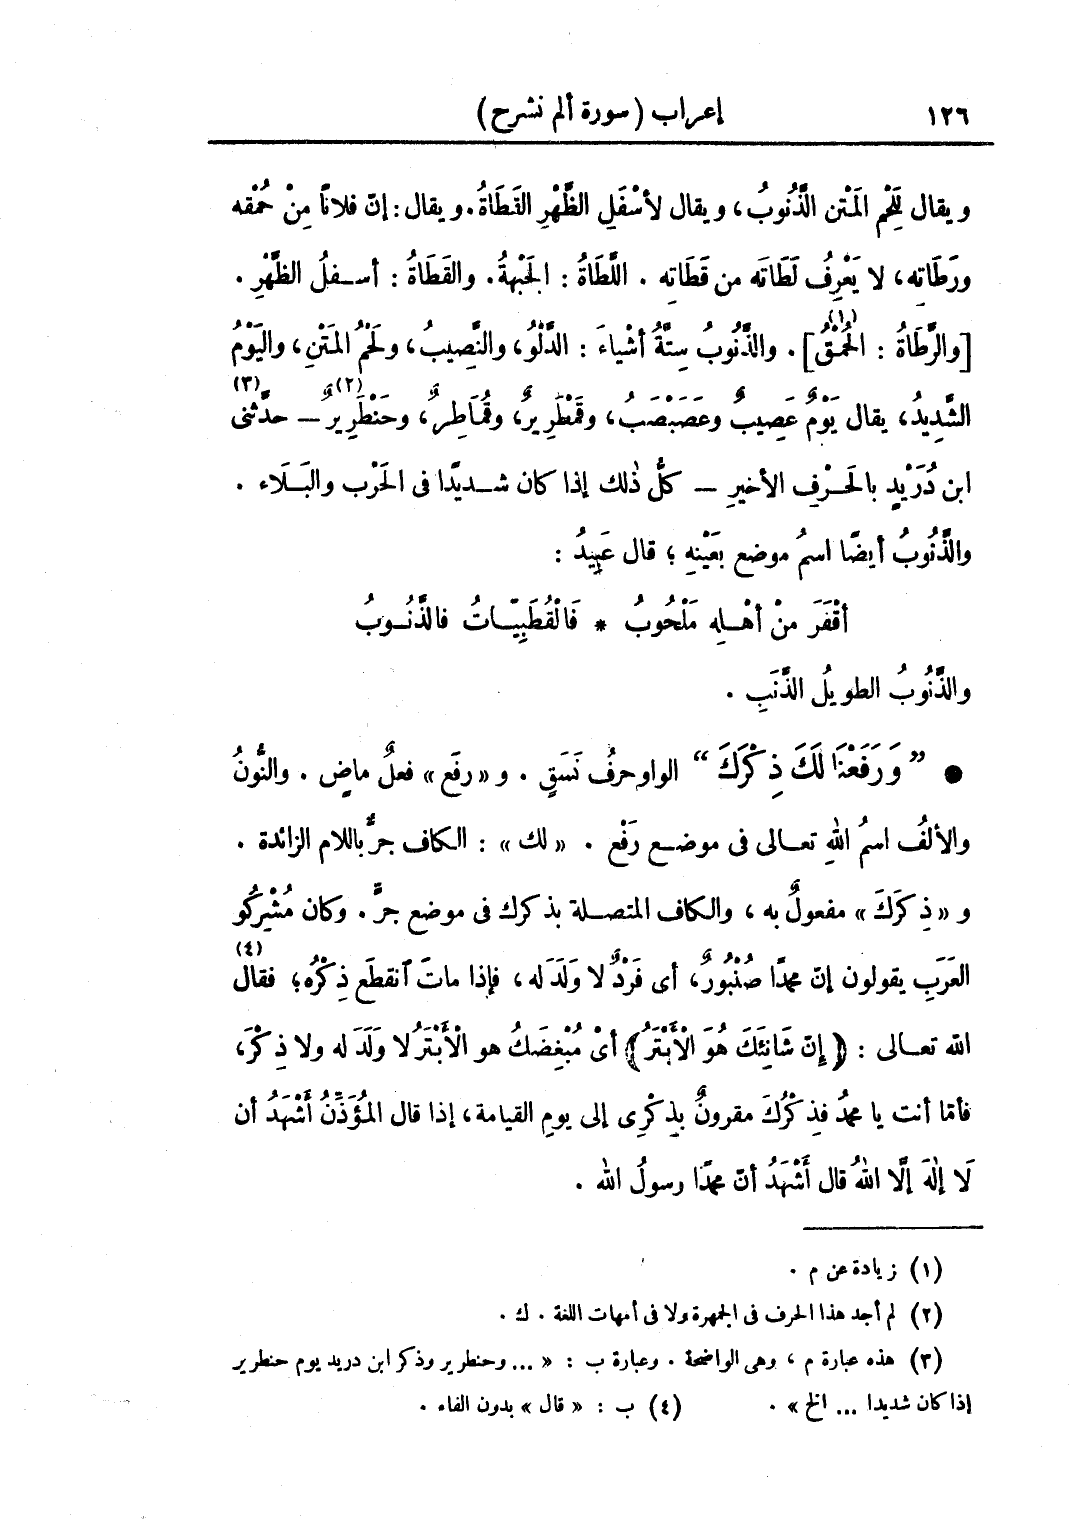 ١٢٦ إعراب (سورة ألم نشرح)
ويقال لِلَحْمِ المَتْن الذَّنُوبُ، ويقال لأسْفَلِ الظَّهْرِ القَطَاةُ. ويقال: إنّ فلانًا مِنْ حُمْقه
ورَطَاتِه، لا يَعْرِفُ لَطَاتَه من قَطَاتِه . اللَّطَاةُ : الجَبْهةُ. والقَطَاةُ : أسـفلُ الظَّهْرِ .
[والرَّطَاةُ : الحُمْقُ](١) . والذَّنُوبُ سِتَّةُ أشْياءَ : الدَّلْوُ، والنَّصِيبُ، ولَحْمُ المَتْنِ، واليَوْمُ
الشَّدِيدُ، يقال يَوْمٌ عَصِيبٌ وعَصَبْصَبُ، وقَمْطَرِيرٌ، وقُمَاطِرٌ، وحَنْطَرِيرٌ(٢) — حدَّثنى(٣)
ابن دُرَيْدٍ بالحَـرْفِ الأخيرِ — كلُّ ذٰلك إذا كان شـديدًا فى الحَرْب والبَـلَاء .
والذَّنُوبُ أيضًا اسمُ موضع بعَيْنهِ ؛ قال عَبِيدُ :
أقْفَرَ مِنْ أهْـلِه مَلْحُوبُ * فَالْقُطَبِيّـاتُ فالذَّنُـوبُ
والذَّنُوبُ الطويلُ الذَّنَبِ .
● ” وَرَفَعْنَا لَكَ ذِكْرَكَ “ الواو حرفُ نَسَقٍ . و « رفَع » فعلٌ ماضٍ . والنُّونُ
والألفُ اسمُ اللهِ تعـالى فى موضـع رَفْع . « لك » : الكاف جرٌّ باللام الزائدة .
و « ذِكرَكَ » مفعولٌ به ، والكاف المتصـلة بذكرك فى موضع جرٍّ . وكان مُشْرِكُو
العَرَبِ يقولون إنّ محمدًا صُنْبُورٌ، أى فَرْدٌ لا وَلَدَ له ، فإذا ماتَ ٱنقطَع ذِكْرُه؛ فقال(٤)
الله تعـالى : ﴿ إِنّ شَانِئَكَ هُوَ الْأَبْتَرُ ﴾ أىْ مُبْغِضَكُ هو الْأَبْتَرُ لا وَلَدَ له ولا ذِكْرَ،
فأمّا أنت يا محمدُ فذِكْرُكَ مقرونٌ بِذِكْرِى إلى يومِ القيامة ، إذا قال المُؤَذِّنُ أَشْهَدُ أن
لَا إلٰهَ إلَّا اللهُ قال أَشْهَدُ أنّ محمدًا رسولُ الله .
(١) زيادة عن م .
(٢) لم أجد هذا الحرف فى الجمهرة ولا فى أمهات اللغة . ك .
(٣) هذه عبارة م ، وهى الواضحة . وعبارة ب : « ... وحنطرير وذكر ابن دريد يوم حنطرير
إذا كان شديدا ... الخ » . (٤) ب : « قال » بدون الفاء .